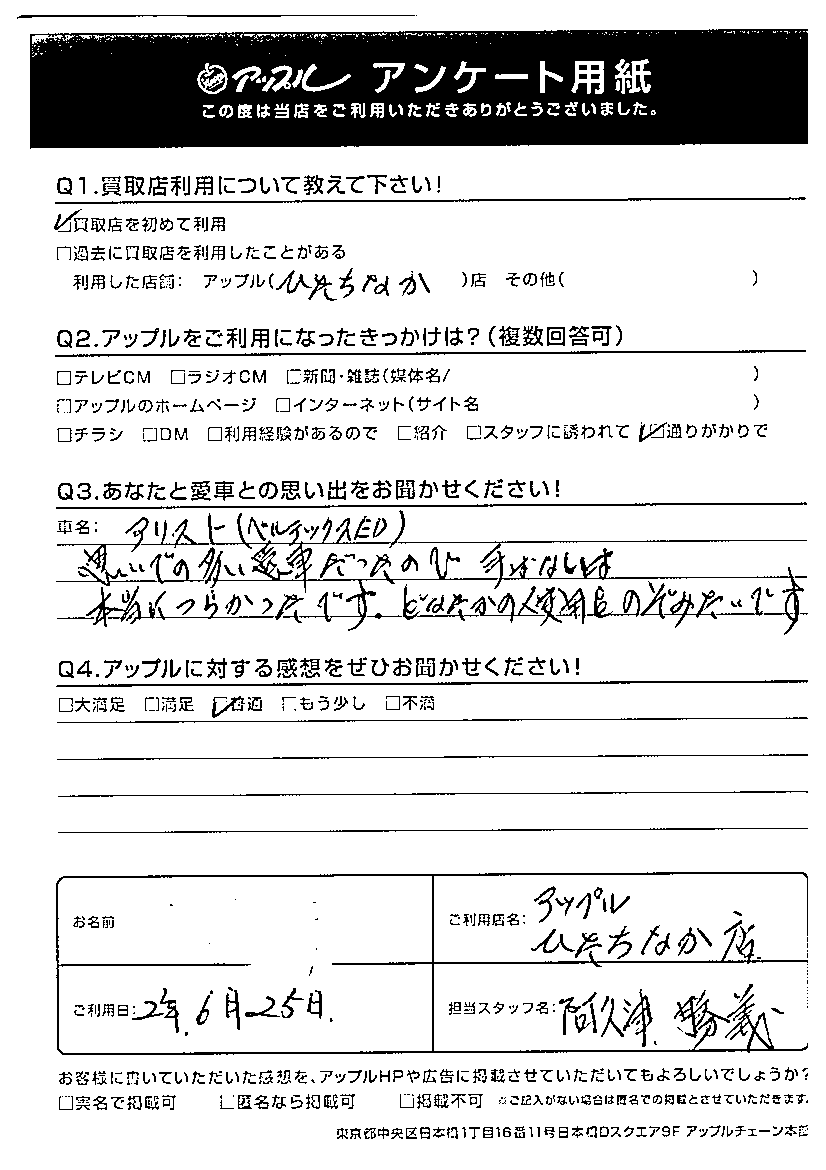 アップル アンケート用紙
この度は当店をご利用いただきありがとうございました。
Q1.買取店利用について教えて下さい!
☑買取店を初めて利用
□過去に買取店を利用したことがある
利用した店舗: アップル(ひたちなか )店 その他( )
Q2.アップルをご利用になったきっかけは?(複数回答可)
□テレビCM □ラジオCM □新聞・雑誌(媒体名/ )
□アップルのホームページ □インターネット(サイト名 )
□チラシ □DM □利用経験があるので □紹介 □スタッフに誘われて ☑通りがかりで
Q3.あなたと愛車との思い出をお聞かせください!
車名: アリスト(ベルテックスED)
思いでの多い愛車だったので 手ばなしは
本当につらかったです。どなたかの使用をのぞみたいです
Q4.アップルに対する感想をぜひお聞かせください!
□大満足 □満足 ☑普通 □もう少し □不満
お名前
ご利用店名: アップル
ひたちなか店
ご利用日: 2年.6月25日.
担当スタッフ名: 阿久津 勝義
お客様に書いていただいた感想を、アップルHPや広告に掲載させていただいてもよろしいでしょうか?
□実名で掲載可 □匿名なら掲載可 □掲載不可 ※ご記入がない場合は匿名での掲載とさせていただきます。
東京都中央区日本橋1丁目16番11号日本橋Dスクエア9F アップルチェーン本部